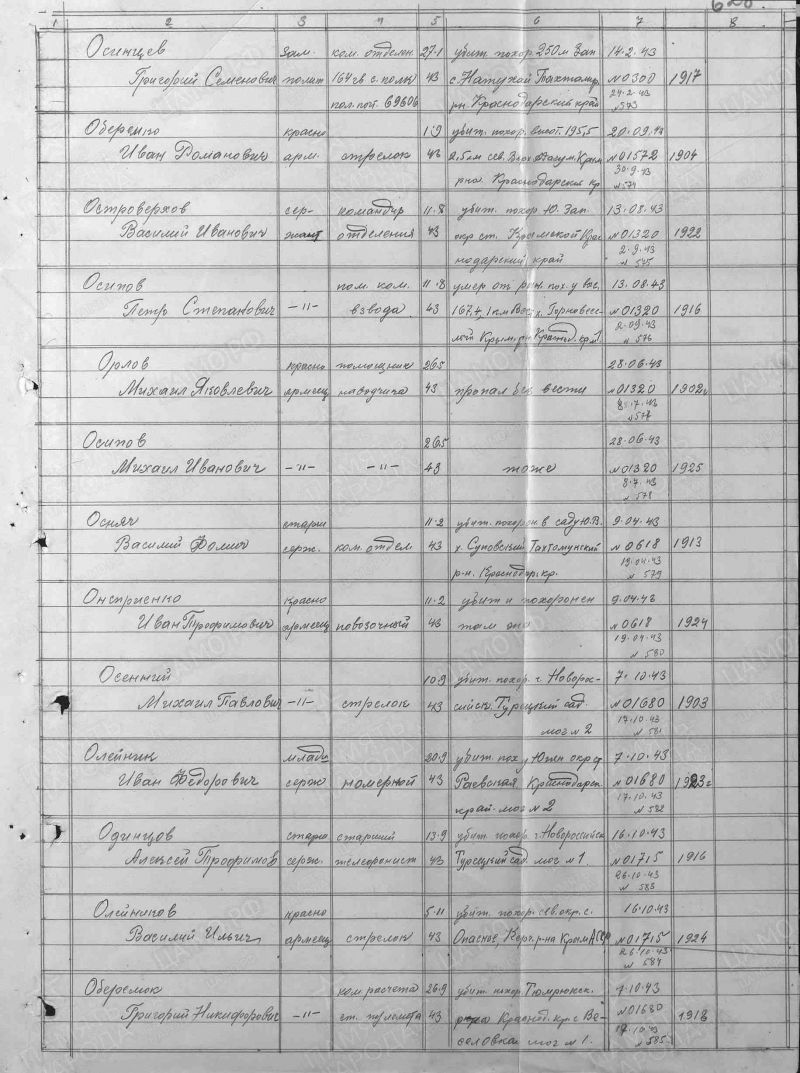 1 2 3 4 5 6 7 8
Осинцев зам. ком. отделен. 27.1 убит. похор. 250 м Зап. 14.2.43
Григорий Семенович полит 164 гв с. полк 43 №0300 1917
пол. поч. 69606 рн. Краснодарский край 24.2.43
№573
красно 1.9 убит. похор. высот. 195,5 20.09.43
Иван Романович арм. стрелок 43 2,5 км сев. №01572 1904
рна. Краснодарския кр 30.9.43
№574
Островерхов сер- командир 11.8 убит. похор Ю. Зап. 13.08.43
Василий Иванович жант отделения 43 окр ст. Крымской Крас №01320 1922
нодарский край 2.9.43
№575
Осипов пом. ком. 11.8 умер от ран. пох. у выс. 13.08.43
Петр Степанович –"– взвода 43 167,4, 1 км Вост х. №01320 1916
2.09.43
№576
Орлов красно помощник 26.5 28.06.43
Михаил Яковлевич армеец наводчика 43 пропал без вести №01320 1902
8.7.43
№577
Осипов 26.5 28.06.43
Михаил Иванович –"– –"– 43 тоже №01320 1925
8.7.43
№578
Осняч старш 11.2 убит. похорон в саду Ю.В. 9.04.43
Василий Фомич серж. ком. отдел 43 х. Суповский Тахтомукский №0618 1913
р-н. Краснодар. кр. 19.04.43
№579
красно 11.2 убит и похоронен 9.04.43
Иван Трофимович армеец повозочный 43 там же №0618 1924
19.04.43
№580
Осенний 10.9 убит. похор. г. Новорос- 7.10.43
Михаил Павлович –"– стрелок 43 сийск. Турецкий сад. №01680 1903
мог №2 17.10.43
№581
Олейник младш 20.9 убит. пох. у Южн окр ст 7.10.43
Иван Федорович серж номерной 43 Раевская Краснодарск. №01680 1923г
край. мог №2 17.10.43
№582
Одинцов старш старший 13.9 убит похор. г. Новороссийск 16.10.43
Алексей Трофимов серж. телефонист 43 Турецкий сад. мог №1. №01715 1916
26.10.43
№583
Олейников красно 5.11 убит. похор. сев. окр. с. 16.10.43
Василий Ильич армеец стрелок 43 Опасное, Керч. р-на Крым АССР №01715 1924
26.10.43
№584
Оберемок ком. расчета 26.9 убит похор. Темрюкск. 7.10.43
Григорий Никифорович –"– ст. пулемета 43 Краснод. кр с Ве- №01680 1918
селовка мог №1. 17.10.43
№585